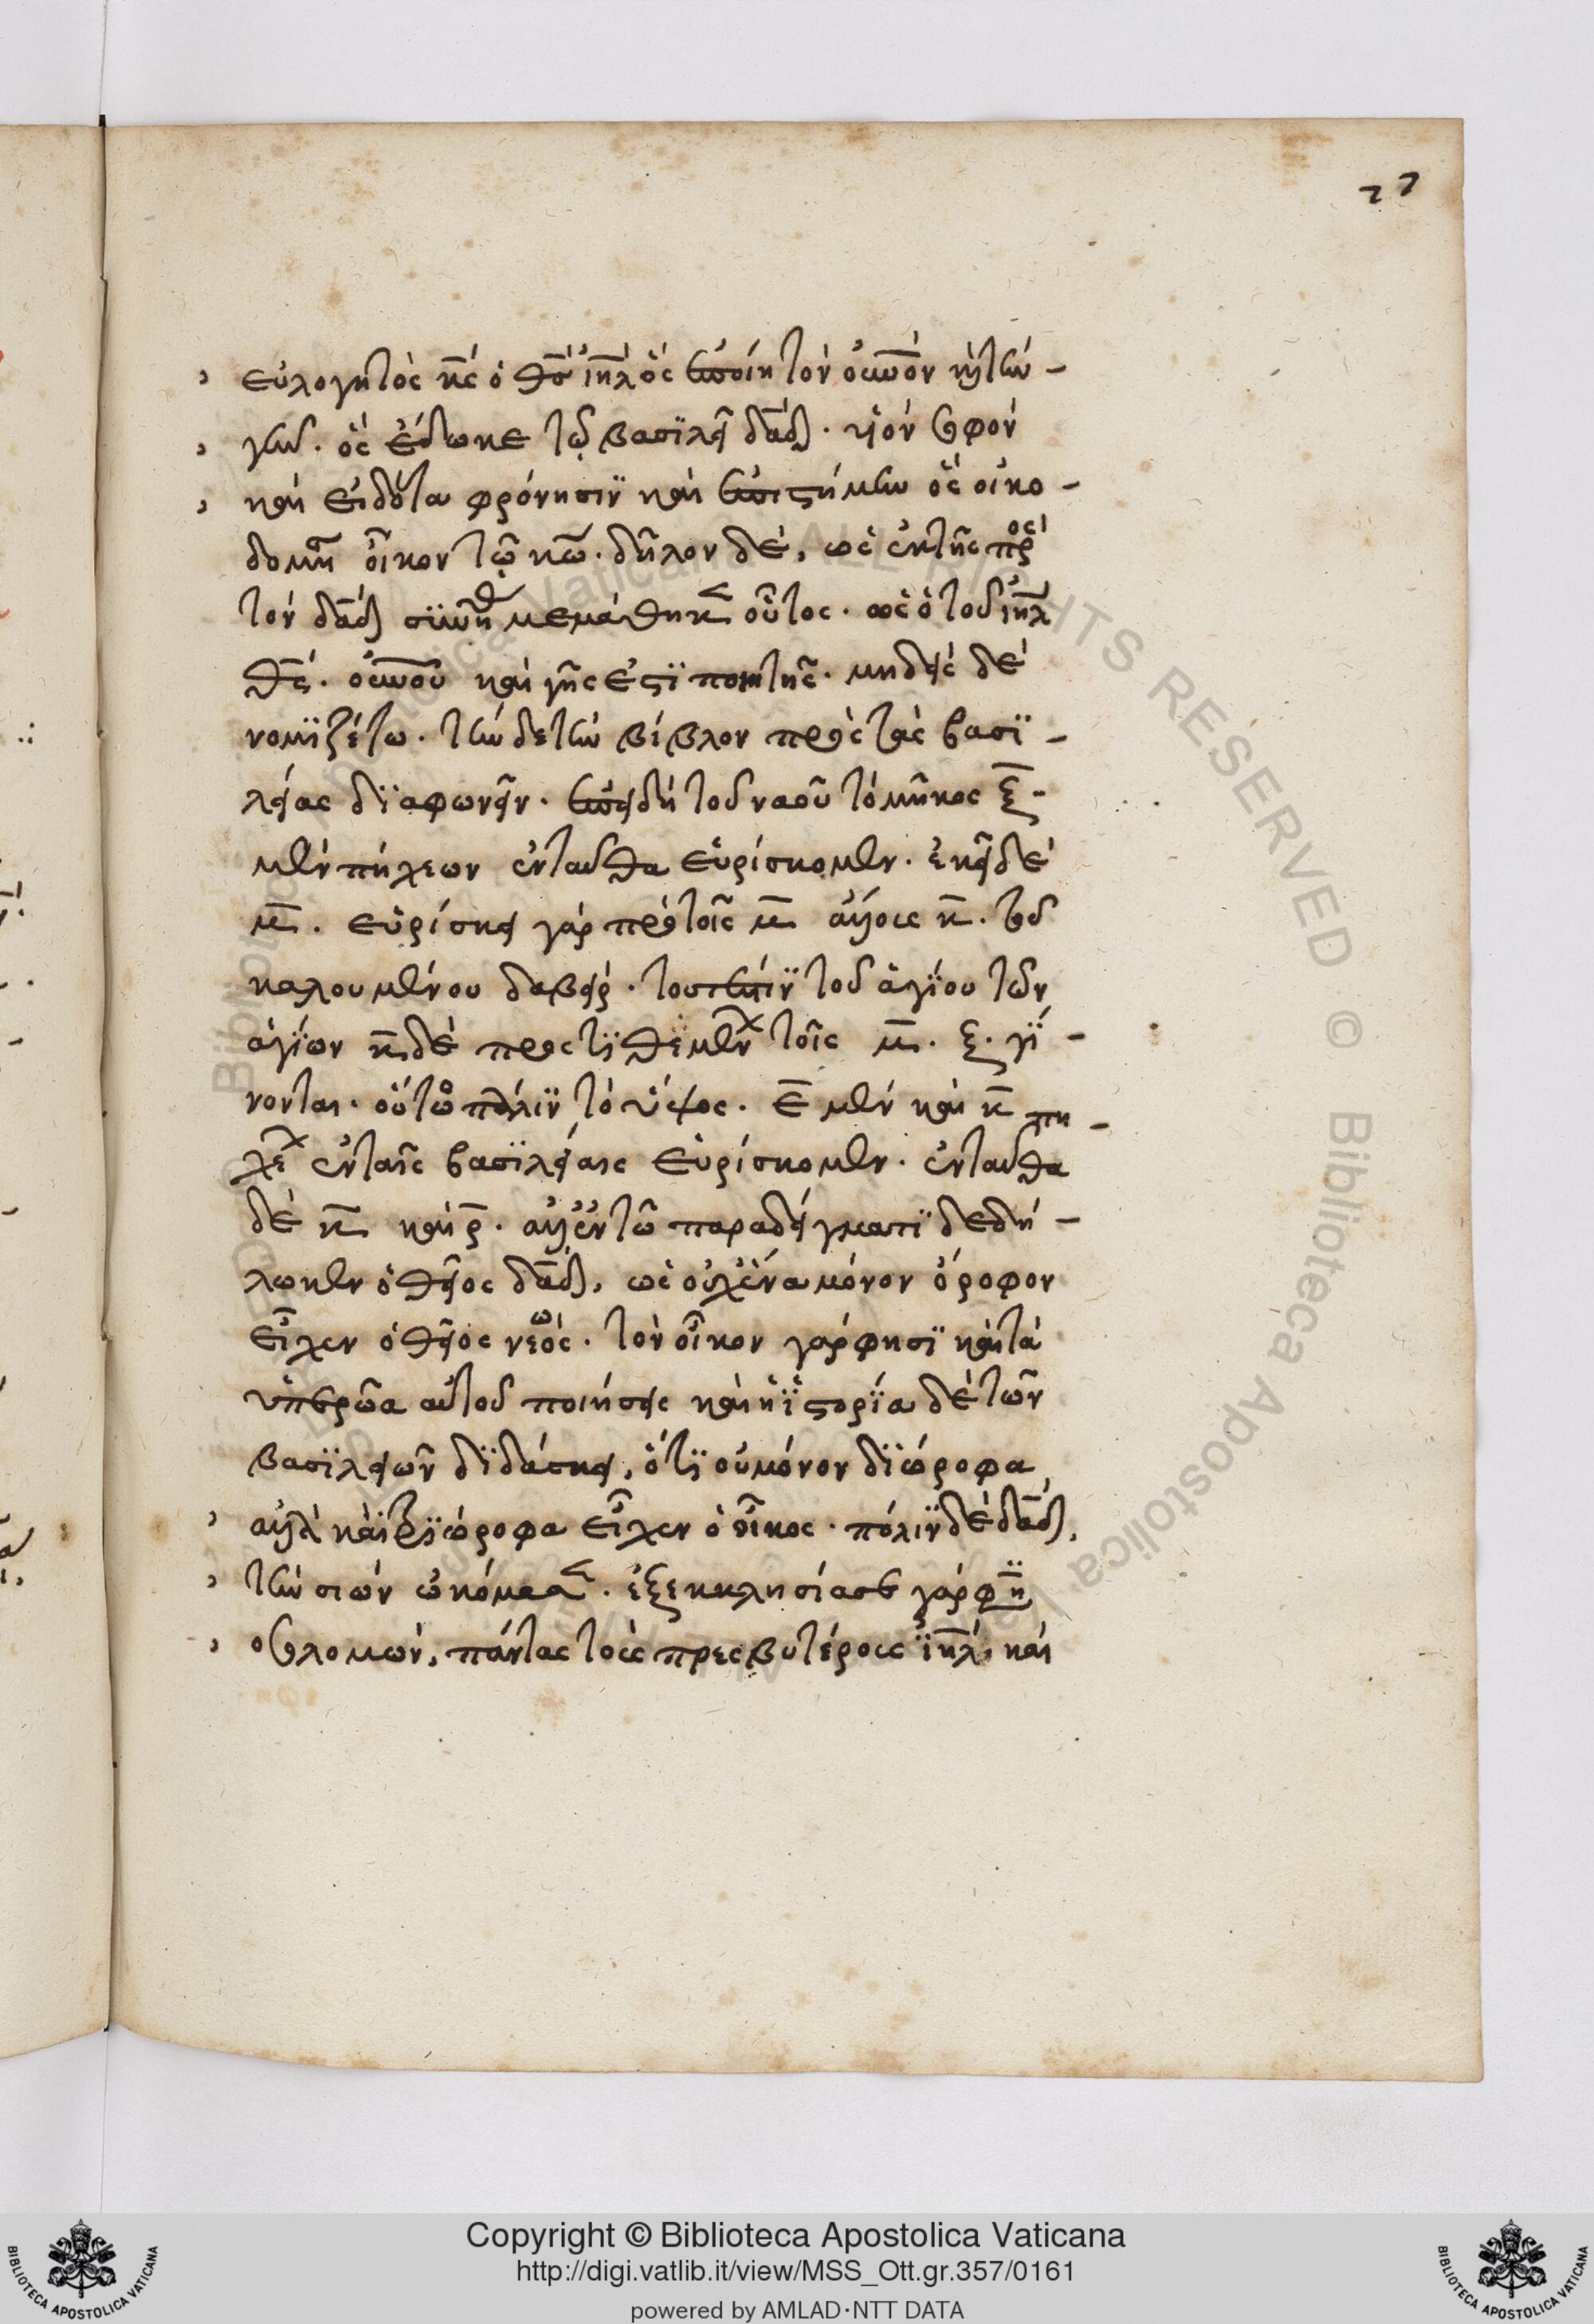 77
εὐλογητὸς κ̅ς̅ ὁ θ̅ς̅ ἰη̅λ̅ ὃς ἐποίη τὸν οὐ̅νο̅ν καὶ τὴν –
γῆν. ὃς ἔδωκε τῷ βασϊλεῖ δα̅δ̅. υἱὸν σοφὸν
καὶ εἰδότα φρόνησιν καὶ ἐπιστήμην ὃς οἰκο –
δομῆ οἶκον τῷ κ̅ω̅. δῆλον δὲ, ὡς ἐκ τῆς πρὸς
τὸν δα̅δ̅ συνθη μεμάθηκε οὗτος. ὡς ὁ τοῦ ἰη̅λ̅
θ̅ς̅. οὐ̅νο̅υ καὶ γῆς ἐστϊ ποιητῆς. μηδεὶς δὲ
νομϊζέτω. τὴν δε τὴν βίβλον πρὸς τὰς βασϊ –
λείας δϊαφωνεῖν. ἐπειδὴ τοῦ ναοῦ τὸ μῆκος ξ̅ –
μὲν πήχεων ἐνταῦθα εὑρίσκομεν. ἐκεῖ δὲ
μ̅. εὑρίσκει γὰρ πρὸ τοῖς μ̅ ἄλλους κ̅. τοῦ
καλουμένου δαβεὶρ. τουτέστιν τοῦ ἁγίου τῶν
ἁγίων κ̅ δὲ προστϊθεμεν τοῖς μ̅. ξ. γϊ –
νονται. οὕτω πάλιν τὸ ὕψος. ε̅ μὲν καὶ κ̅ πη –
χε ἐν ταῖς βασϊλείαις εὑρίσκομεν. ἐνταῦθα
δὲ κ̅ καὶ ρ̅. ἀλλ' ἐν τῶ παραδείγματϊ δεδή –
λωκεν ὁ θεῖος δα̅δ̅, ὡς οὐχ ἕνα μόνον ὄροφον
εἶχεν ὁ θεῖος νεὼς. τὸν οἶκον γάρ φησϊ καὶ τὰ
ὑπερῶα αὐτοῦ ποιήσεις καὶ ἡ ἱστορία δὲ τῶν
βασϊλειῶν δϊδάσκει, ὅτϊ οὐ μόνον δϊώροφα
ἀλλὰ καὶ τρϊώροφα εἶχεν ὁ οἶκος. πόλιν δὲ δα̅δ̅,
τὴν σιὼν ὠνόμασ. ἐξεκκλησίασε γάρ φη
ὁ σολομὼν, πάντας τοὺς πρεσβυτέρους ἰη̅λ̅, καὶ
Copyright © Biblioteca Apostolica Vaticana
http://digi.vatlib.it/view/MSS_Ott.gr.357/0161
powered by AMLAD·NTT DATA
BIBLIOTECA APOSTOLICA VATICANA
BIBLIOTECA APOSTOLICA VATICANA